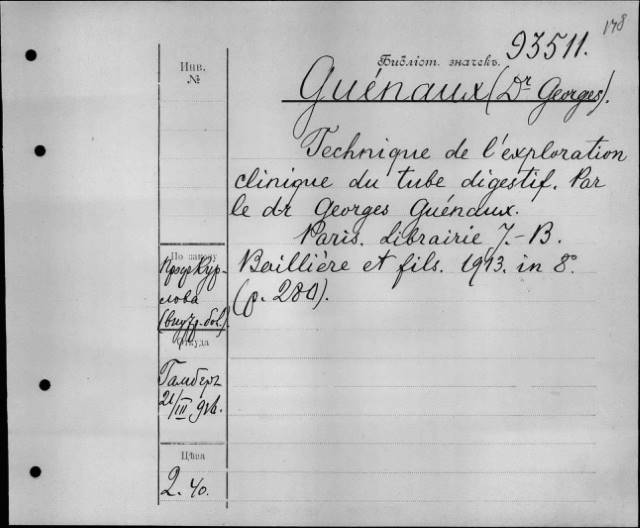 178
Библіот. значекъ. 93511.
Инв.
№
Guénaux (Dr Georges).
Technique de l'exploration
clinique du tube digestif. Par
le dr Georges Guénaux.
Paris. Librairie J.-B.
Baillière et fils. 1913. in 8°
(p. 280).
По заказу
Проф Кур-
лова
(внутр. бол.).
Откуда
Гамберъ
21/III 912.
Цѣна
2. 40.